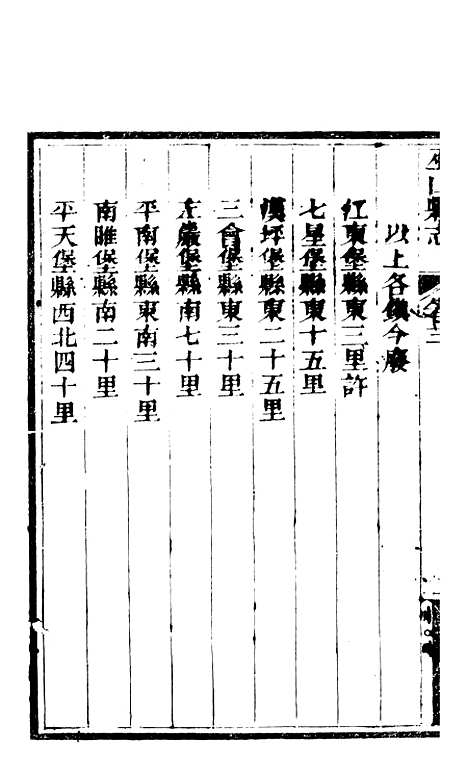 山縣志
以上各鎮今廢
江東堡縣東三里許
七星堡縣東十五里
漢坪堡縣東二十五里
三會堡縣東三十里
巖堡縣南七十里
平南堡縣東南三十里
南雎堡縣南二十里
平天堡縣西北四十里